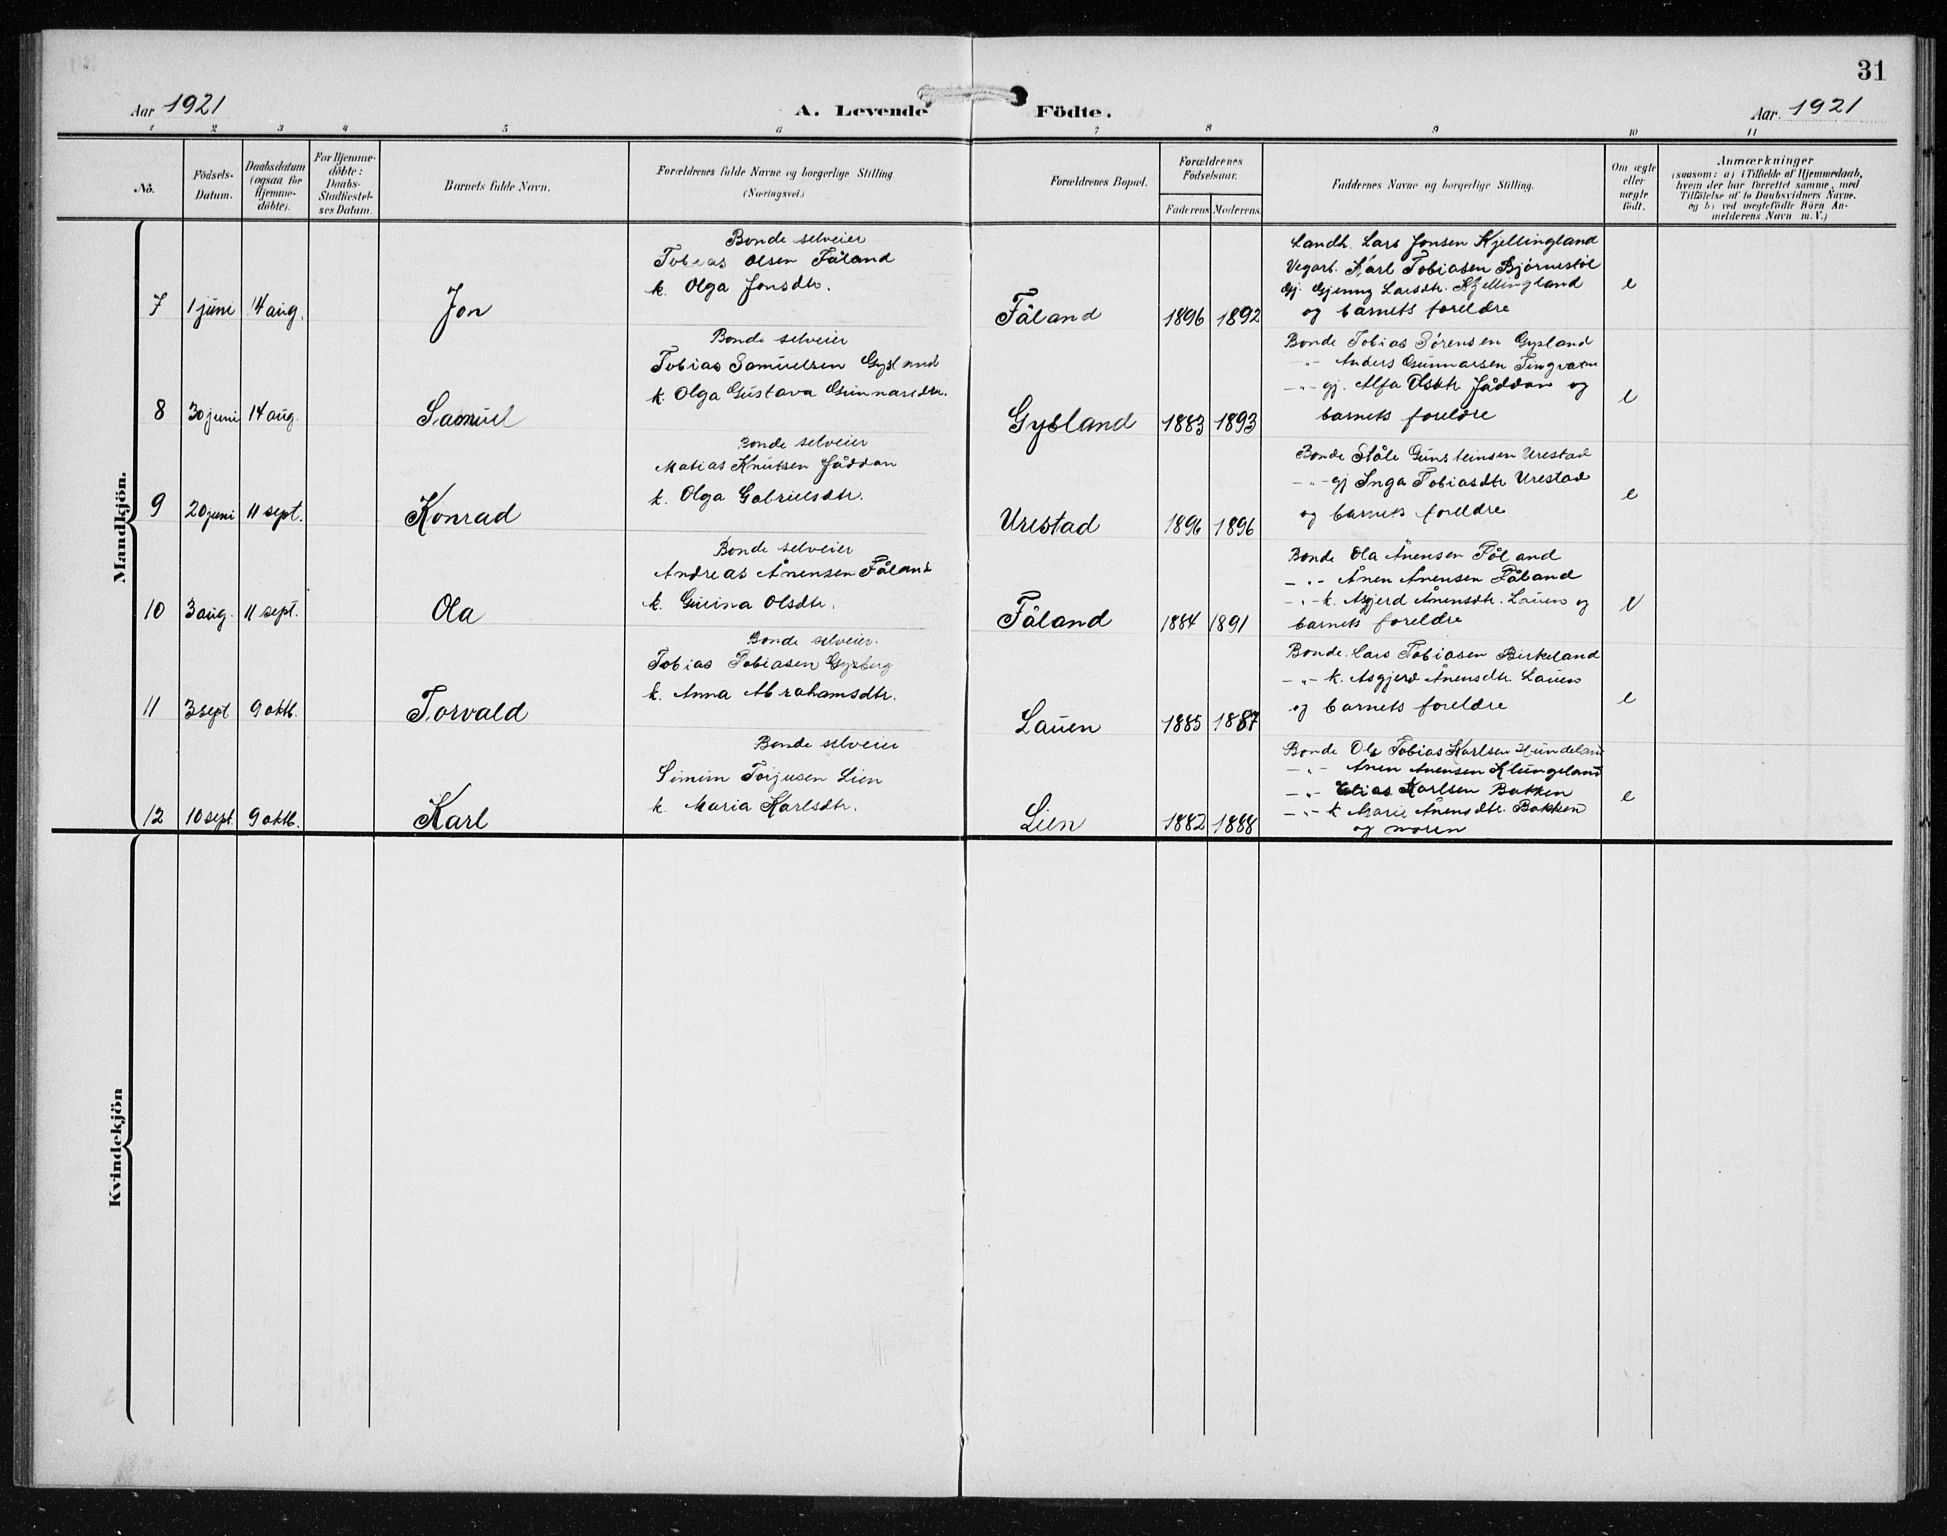 31
Aar 1921
A. Levende Födte.
Aar. 1921
1 2 3 4 5 6 7 8 9 10 11
No.
Födsels-Datum.
Daabsdatum (ogsaa for Hjemme-döbte).
For Hjemme-döbte: Daabs-Stadfæstel-ses Datum.
Barnets fulde Navn.
Forældrenes fulde Navne og borgerlige Stilling (Næringsvei.)
Forældrenes Bopæl.
Forældrenes Födselsaar.
Faderens Moderens
Faddernes Navne og borgerlige Stilling.
Om ægte eller uægte födt.
Anmærkninger
(saasom: a) i Tilfælde af Hjemmedaab, hvem der har forrettet samme, med Tilföielse af to Daabsvidners Navne. og b) ved uægtefödte Börn An-melderens Navn m. V.)
Mandkjön.
Bonde selveier
Tobias Olsen Fåland
k. Olga Jonsdtr.
7 1 juni 14 aug. Jon Fåland 1896 1892 e
Landh. Lars Jonsen Kjellingland
Vegarb. Karl Tobiasen Bjørnestøl
Gj. Gjenny Larsdtr. Kjellingland
og barnets foreldre
Bonde selveier
Tobias Samuelsen Gysland
k. Olga Gustava Gunnarsdtr.
8 30 juni 14 aug. Samuel Gysland 1883 1893 e
Bonde Tobias Sørensen Gysland
-"- Anders Gunnarsen Tingvatne
-"- gj. Alfa Olsdtr Jåddan og
barnets foreldre
Bonde selveier
Matias Knutsen Jåddan
k. Olga Gabrielsdtr.
9 20 juni 11 sept. Konrad Urestad 1896 1896 e
Bonde Ståle Gunsteinsen Urestad
-"- gj Inga Tobiasdtr Urestad
og barnets foreldre
Bonde selveier
Andreas Ånensen Fåland
k. Gurina Olsdtr.
10 3 aug. 11 sept. Ola Fåland 1884 1891 e
Bonde Ola Ånensen Fåland
-"- Ånen Ånensen Fåland
-"- k. Asgjerd Ånensdtr. Lauen og
barnets foreldre
Bonde selveier.
Tobias Tobiasen Gysberg
k. Anna Abrahamsdtr.
11 3 sept 9 oktb. Torvald Lauen 1885 1887 e
Bonde Lars Tobiasen Birkeland
-"- k. Asgjerd Ånensdtr Lauen
og barnets foreldre
Bonde selveier
Simon Torjusen Lien
k. Maria Karlsdtr.
12 10 sept. 9 oktb. Karl Lien 1882 1888 e
Bonde Ole Tobias Karlsen Hundeland
-"- Anen Anensen Klungeland
-"- Elias Karlsen Bakken
-"- k Marie Ånensdtr. Bakken
og moren
Kvindekjön